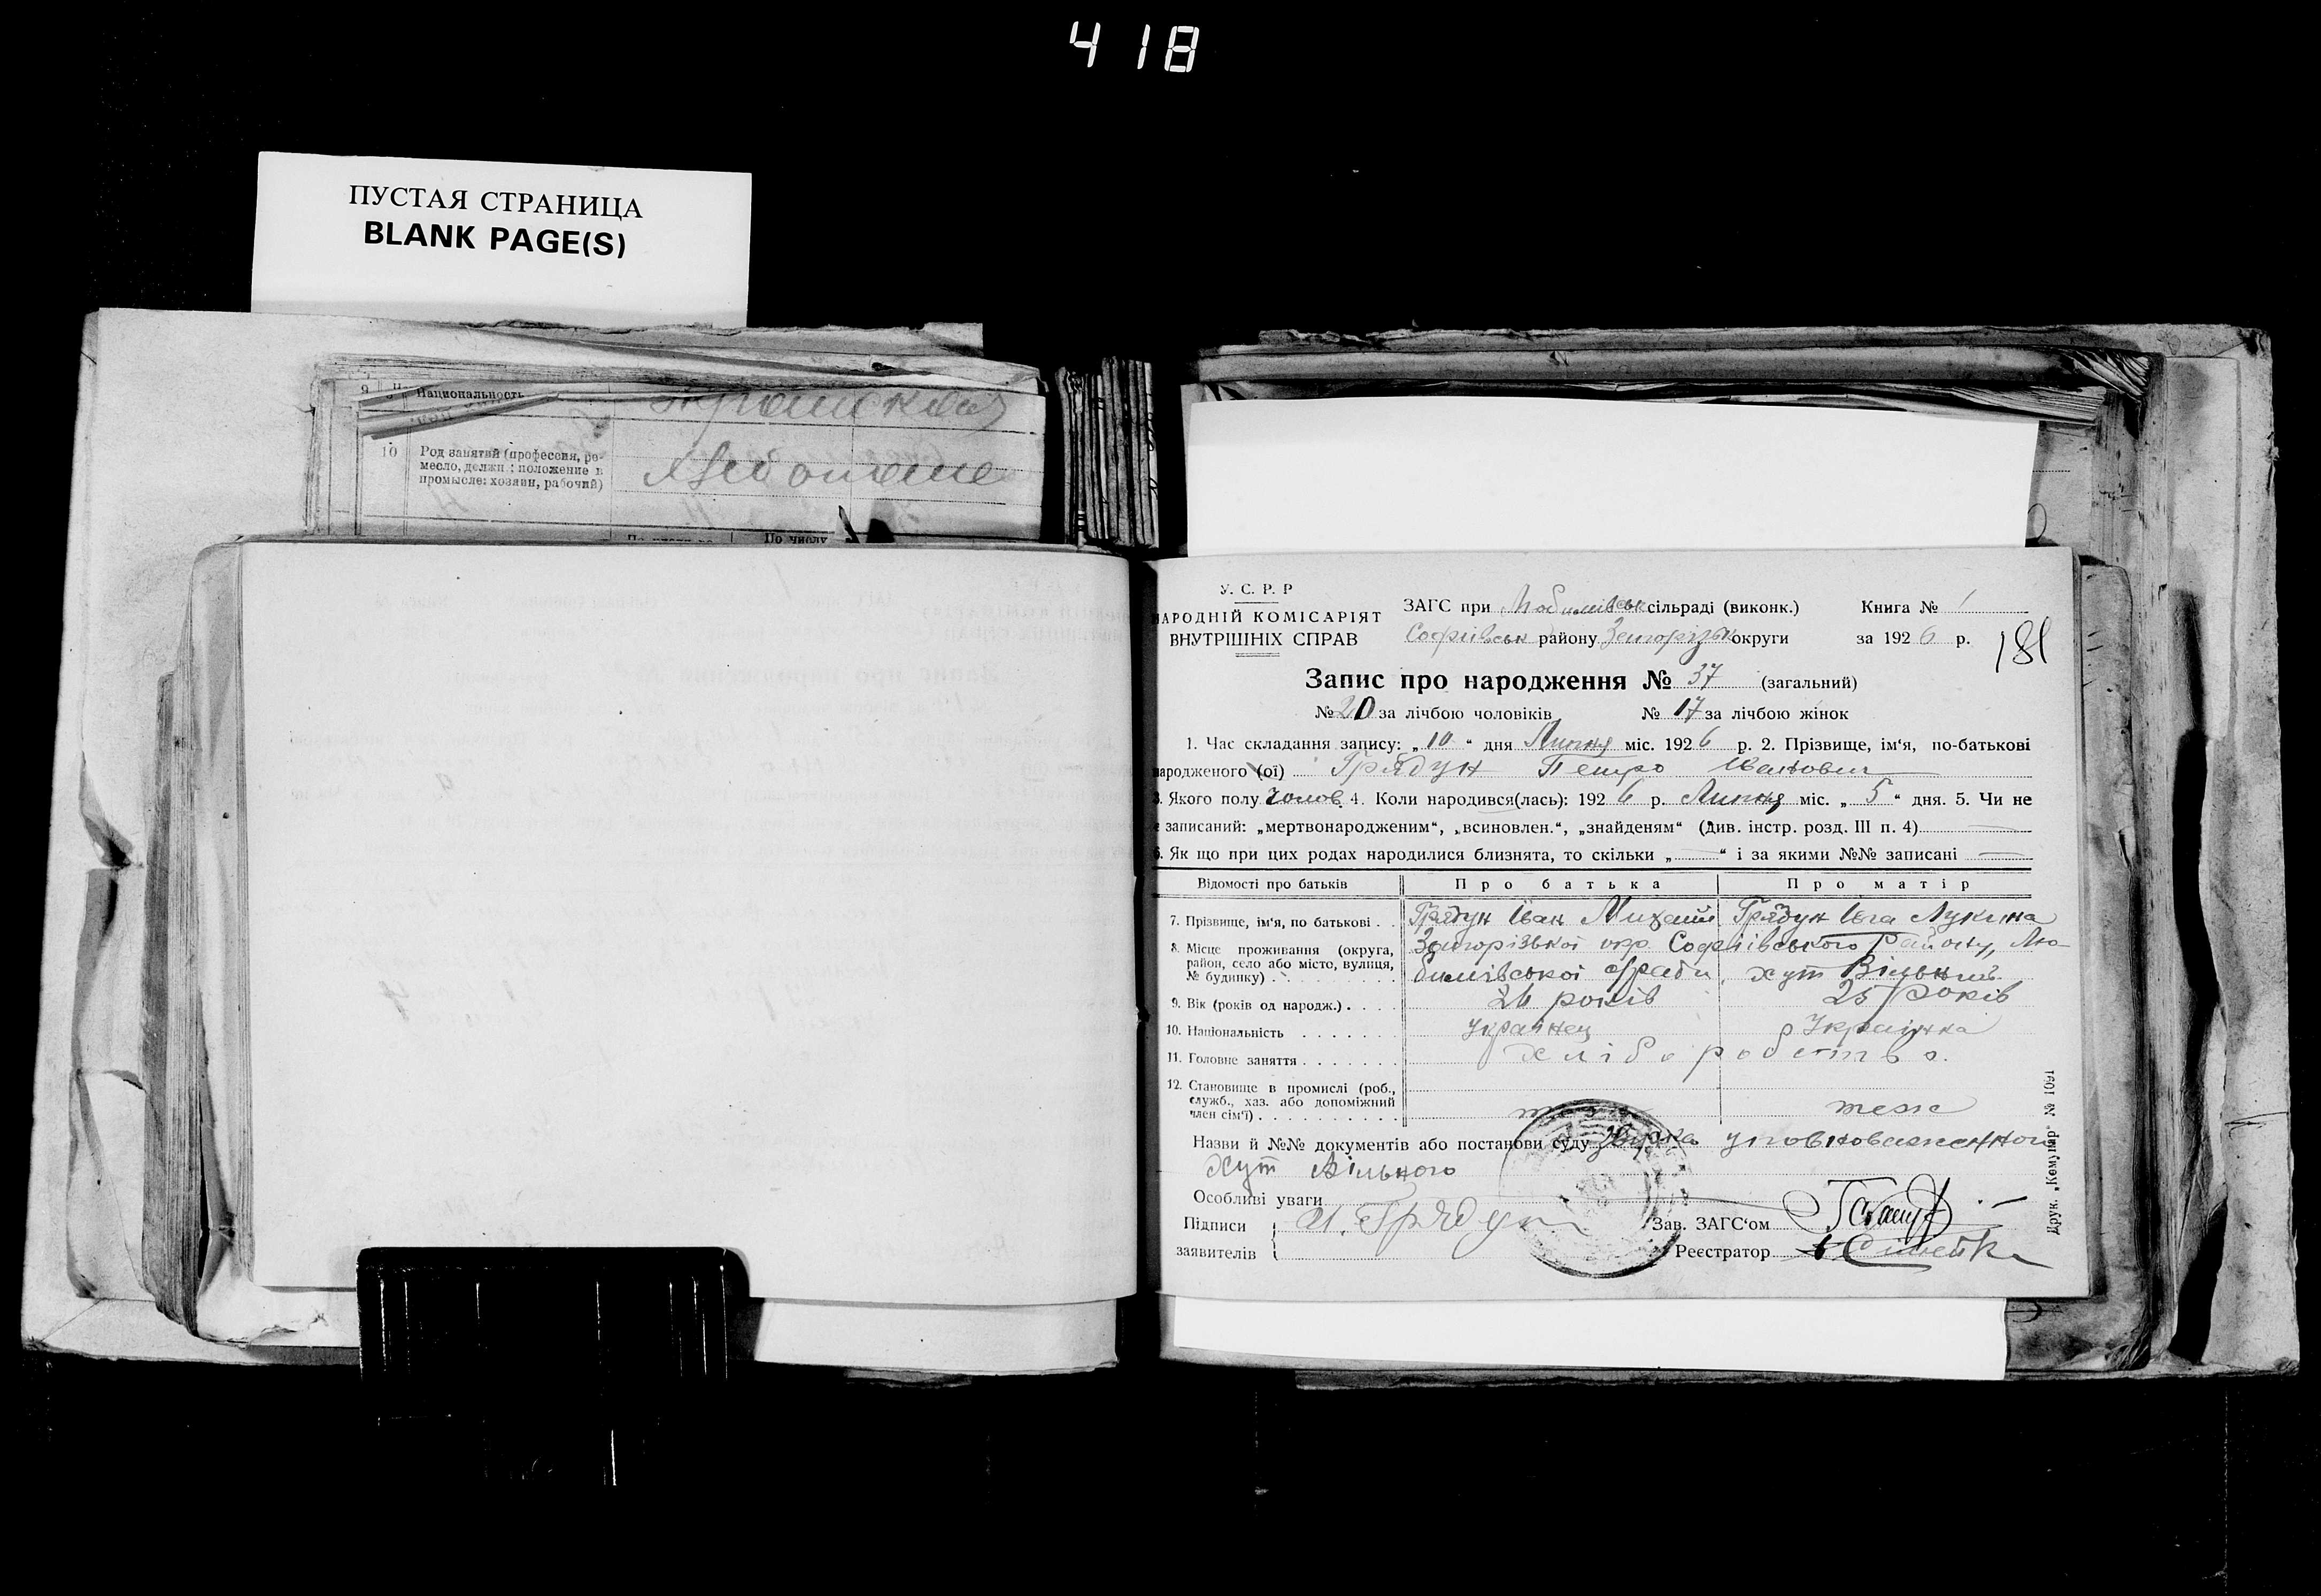 418
ПУСТАЯ СТРАНИЦА
BLANK PAGE(S)
9 Национальность
10 Род занятий (профессия, ре-
месло, должн.: положение в
промысле: хозяин, рабочий)
По числу
У. С. Р. Р
НАРОДНІЙ КОМІСАРІЯТ
ВНУТРІШНІХ СПРАВ
ЗАГС при Любимівськ сільраді (виконк.) Книга № 1
Софіївськ району Запорізьк округи за 1926 р.
181
Запис про народження № 37 (загальний)
№ 20 за лічбою чоловіків № 17 за лічбою жінок
1. Час складання запису: „10“ дня Липня міс. 1926 р. 2. Прізвище, ім‘я, по-батькові
народженого (ої) Грядун Петро Іванович
3. Якого полу чолов. 4. Коли народився(лась): 1926 р. Липня міс. „5“ дня. 5. Чи не
є записаний: „мертвонародженим“, „всиновлен.“, „знайденям“ (див. інстр. розд. III п. 4)
6. Як що при цих родах народилися близнята, то скільки „ “ і за якими №№ записані
Відомості про батьків Про батька Про матір
7. Прізвище, ім‘я, по батькові . . Грядун Іван Михайл Грядун Івга Лукина
8. Місце проживання (округа,
район, село або місто, вулиця,
№ будинку) Запорізької окр. Софіівського Району, Лю-
бимівської с/ради, хут Вільний
9. Вік (років од народж.) . . . . 26 років 25 років
10. Національність . . . . . . . українец Українка
11. Головне заняття . . . . . . . хліборобство.
12. Становище в промислі (роб.,
служб., хаз. або допоміжний
член сім‘ї) . . . . . . . . . . теж
Назви й №№ документів або постанови суду уповноваженного
Хут Вільного
Особливі уваги
Підписи
заявителів И. Грядун
Зав. ЗАГС‘ом
Реєстратор
Друк. „Комунар“ № 1091